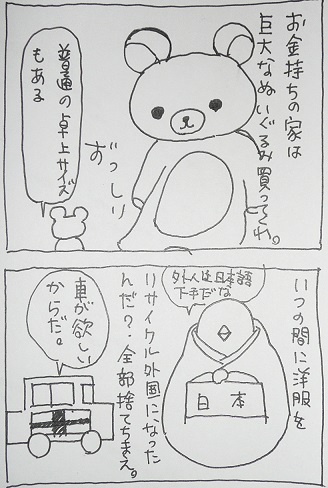 お金持ちの家は
巨大なぬいぐるみ買ってくれ。
ずっしり
普通の卓上サイズ
もある
いつの間に洋服を
リサイクル外国になった
んだ?全部捨てちまえ。
外人は日本語
下手だな
日本
車が欲しい
からだ。